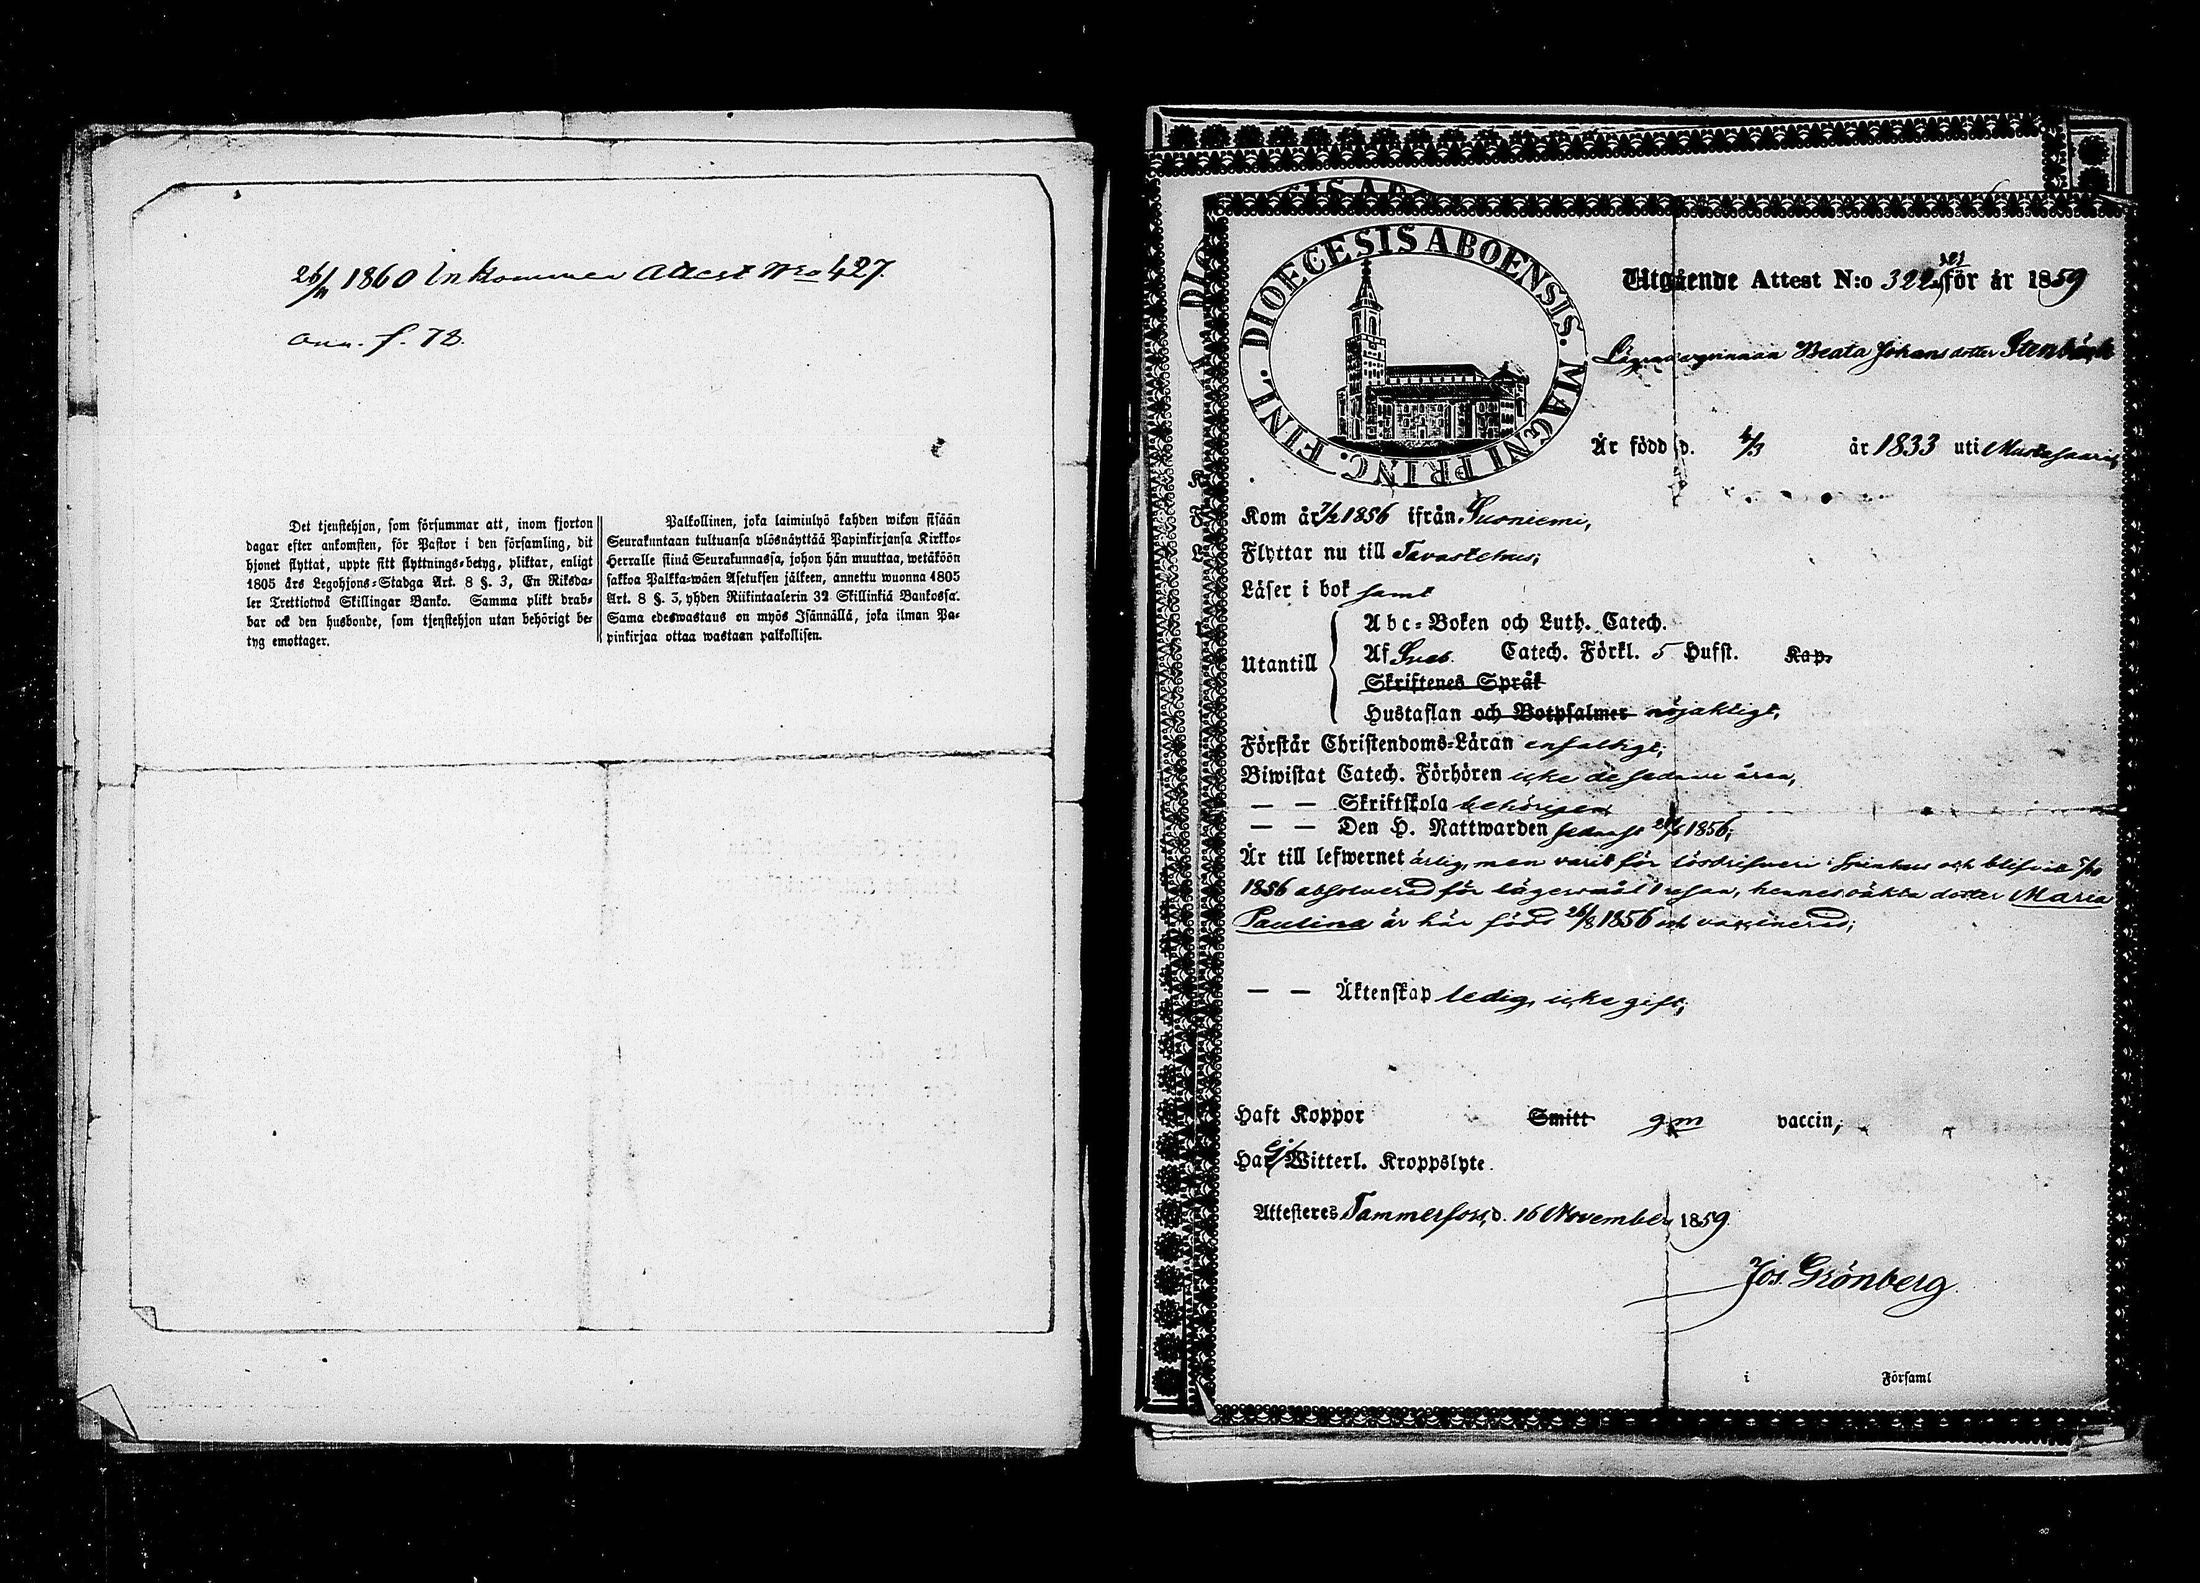 26/11 1860 Inkommen Attest Nro 427.
ann. f. 78.
Det tjenstehjon, som försummar att, inom fjorton
dagar efter ankomsten, för Pastor i den församling, dit
hjonet flyttat, uppte sitt flyttnings-betyg, pliktar, enligt
1805 års Legohjons-Stadga Art. 8 §. 3, En Riksda-
ler Trettiotwå Skillingar Banko. Samma plikt drab-
bar ock den husbonde, som tjenstehjon utan behörigt be-
tyg emottager.
Palkollinen, joka laiminlyö kahden wikon sisään
Seurakuntaan tultuansa ylösnäyttää Papinkirjansa Kirkko-
Herralle siinä Seurakunnassa, johon hän muuttaa, wetäköön
sakkoa Palkka-wäen Asetuksen jälkeen, annettu wuonna 1805
Art. 8 §. 3, yhden Riikintaalerin 32 Skillinkiä Bankossa.
Sama edeswastaus on myös Isännällä, joka ilman Pa-
pinkirjaa ottaa wastaan palkollisen.
DIOECESIS ABOENSIS. MAGNI PRINC. FINL.
Utgående Attest N:o 322 för år 1859
321
Beata Johansdotter Stenbäck
Är född d. 4/3 år 1833 uti Mustasaari,
Kom år 7/2 1856 ifrån Suoniemi,
Flyttar nu till Tavastehus;
Läser i bok samt
Utantill
Abc-Boken och Luth. Catech.
Af Sveb. Catech. Förkl. 5 Hufst. Kap.
Skriftenes Språk
Hustaflan och Botpsalmer nöjaktigt,
Förstår Christendoms-Läran enfaldigt;
Biwistat Catech. Förhören icke de sednare åren,
— — Skriftskola behörigen
— — Den H. Nattwarden sednast 1856;
Är till lefwernet ärlig, men varit för lösdrifveri i Spinhus och blifvit 5/10
1856 absolverad för lägersmål 1 resan, hennes oäkta dotter Maria
Paulina är här född 26/8 1856 och vaccinerad;
— — Äktenskap ledig, icke gift;
Haft Koppor Smitt g m vaccin,
Har ej Witterl. Kroppslyte.
Attesteres Tammerfors, d. 16 November 1859.
Jos. Grönberg.
i Församl